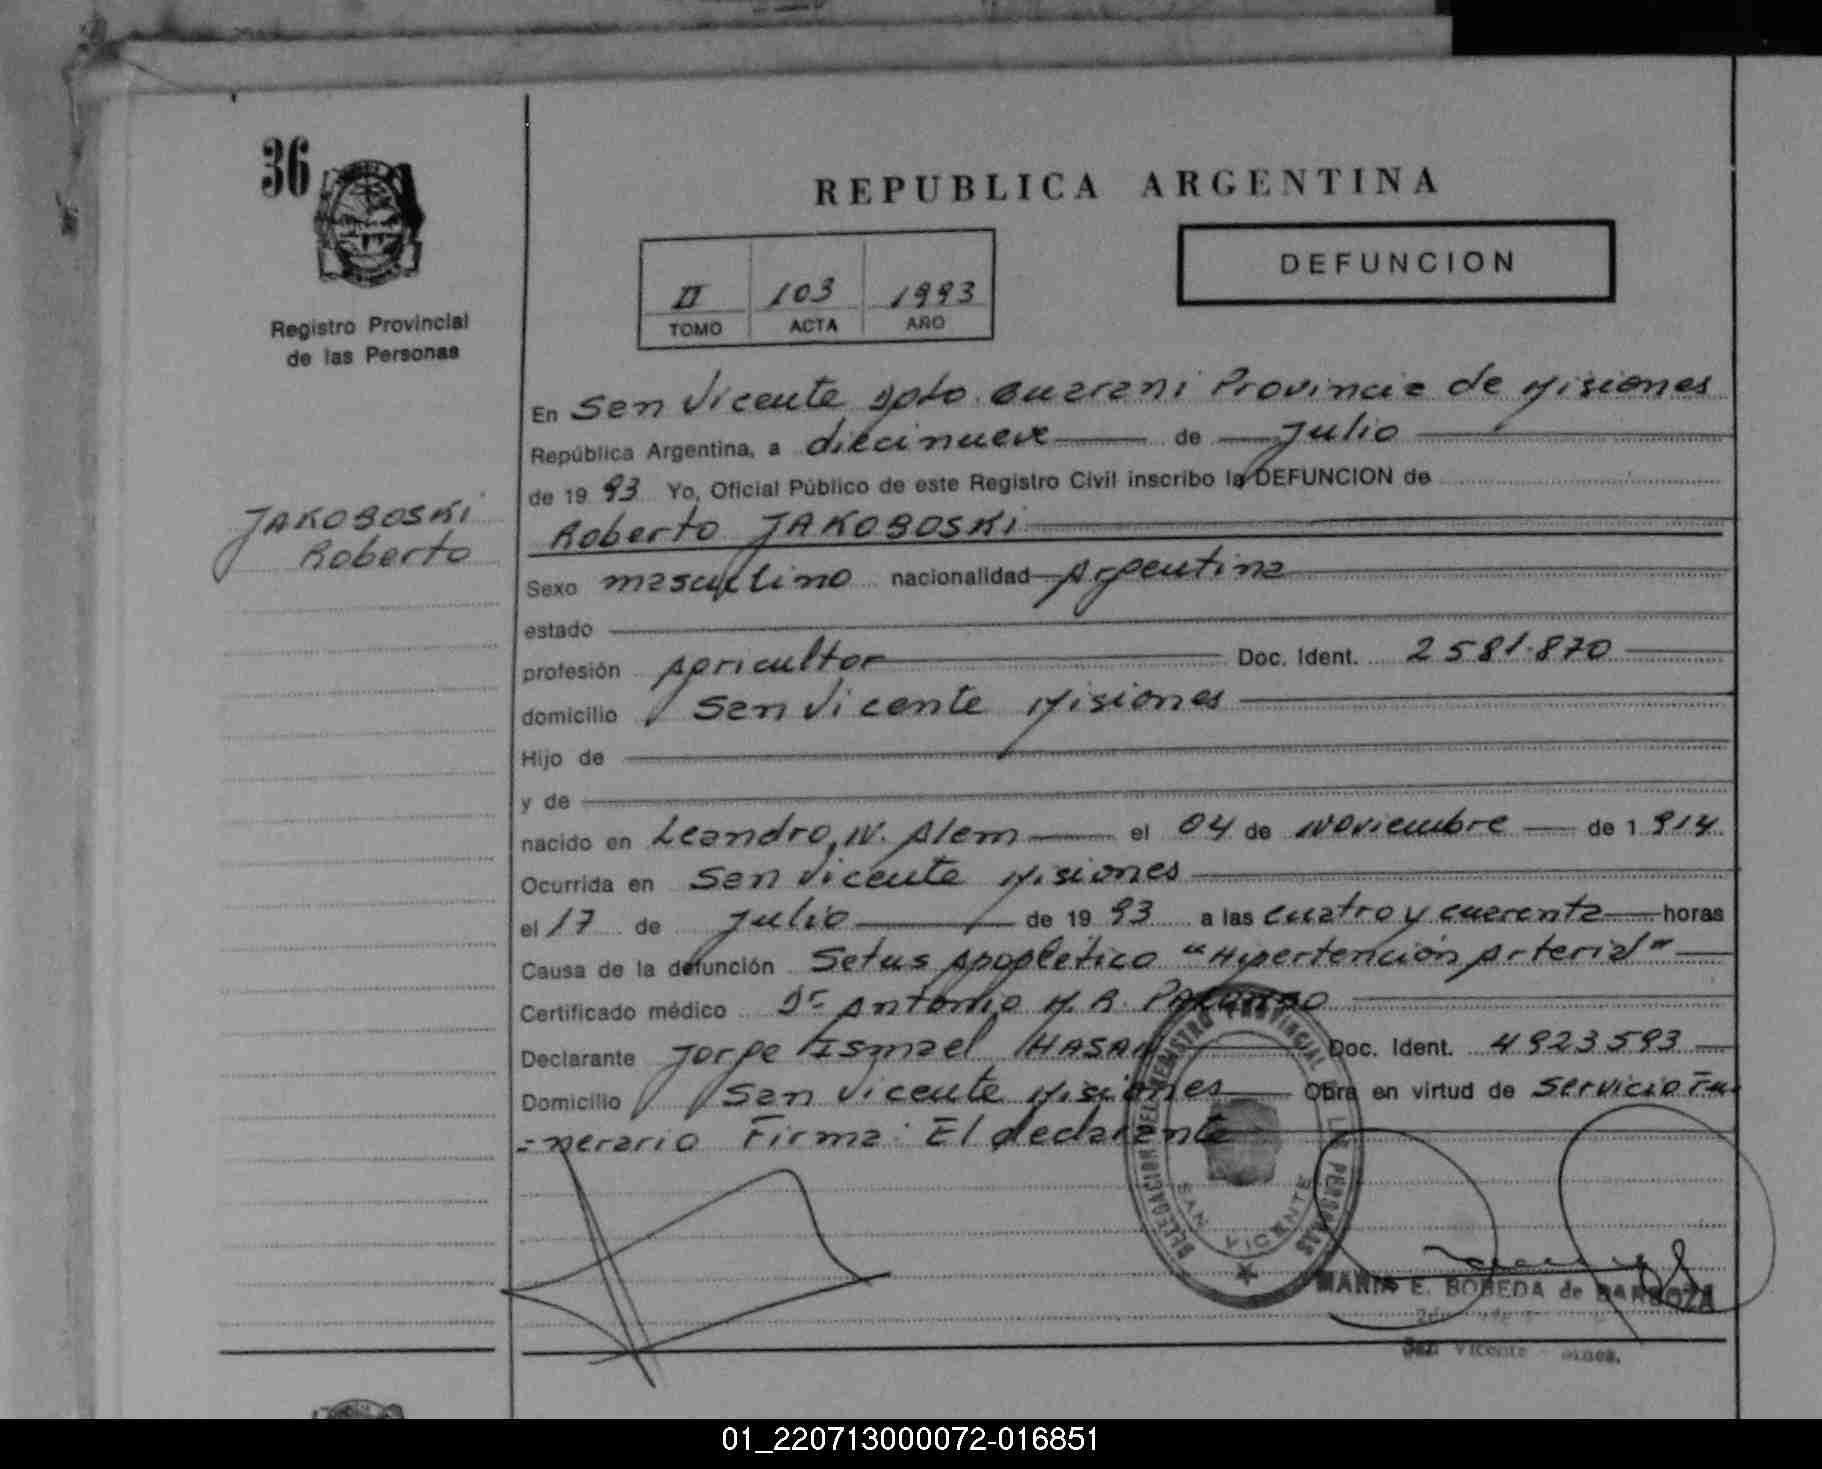 36
REPUBLICA ARGENTINA
DEFUNCION
II 103 1993
TOMO ACTA AÑO
Registro Provincial
de las Personas
En San Vicente Dpto Guarani Provincia de Misiones
República Argentina, a diecinueve de Julio
de 19 93 Yo, Oficial Público de este Registro Civil inscribo la DEFUNCION de
JAKOBOSKI
Roberto
Roberto JAKOBOSKI
Sexo masculino nacionalidad Argentina
estado
profesión Agricultor Doc. Ident. 2581.870
domicilio San Vicente Misiones
Hijo de
y de
nacido en Leandro, N. Alem el 04 de Noviembre de 1 914
Ocurrida en San Vicente Misiones
el 17 de Julio de 19 93 a las cuatro y cuarenta horas
Causa de la defunción Setus Apopletico "Hipertención Arterial"
Certificado médico Dr Antonio M. R.
Declarante Jorge Ismael HASAN Doc. Ident. 4823593
Domicilio San Vicente Misiones Obra en virtud de Servicio Fu
=nerario Firma: El declarante
DELEGACION DEL REGISTRO PROVINCIAL LAS PERSONAS
SAN VICENTE
MARIA E. BOBEDA de BARBOZA
San Vicente
01_220713000072-016851